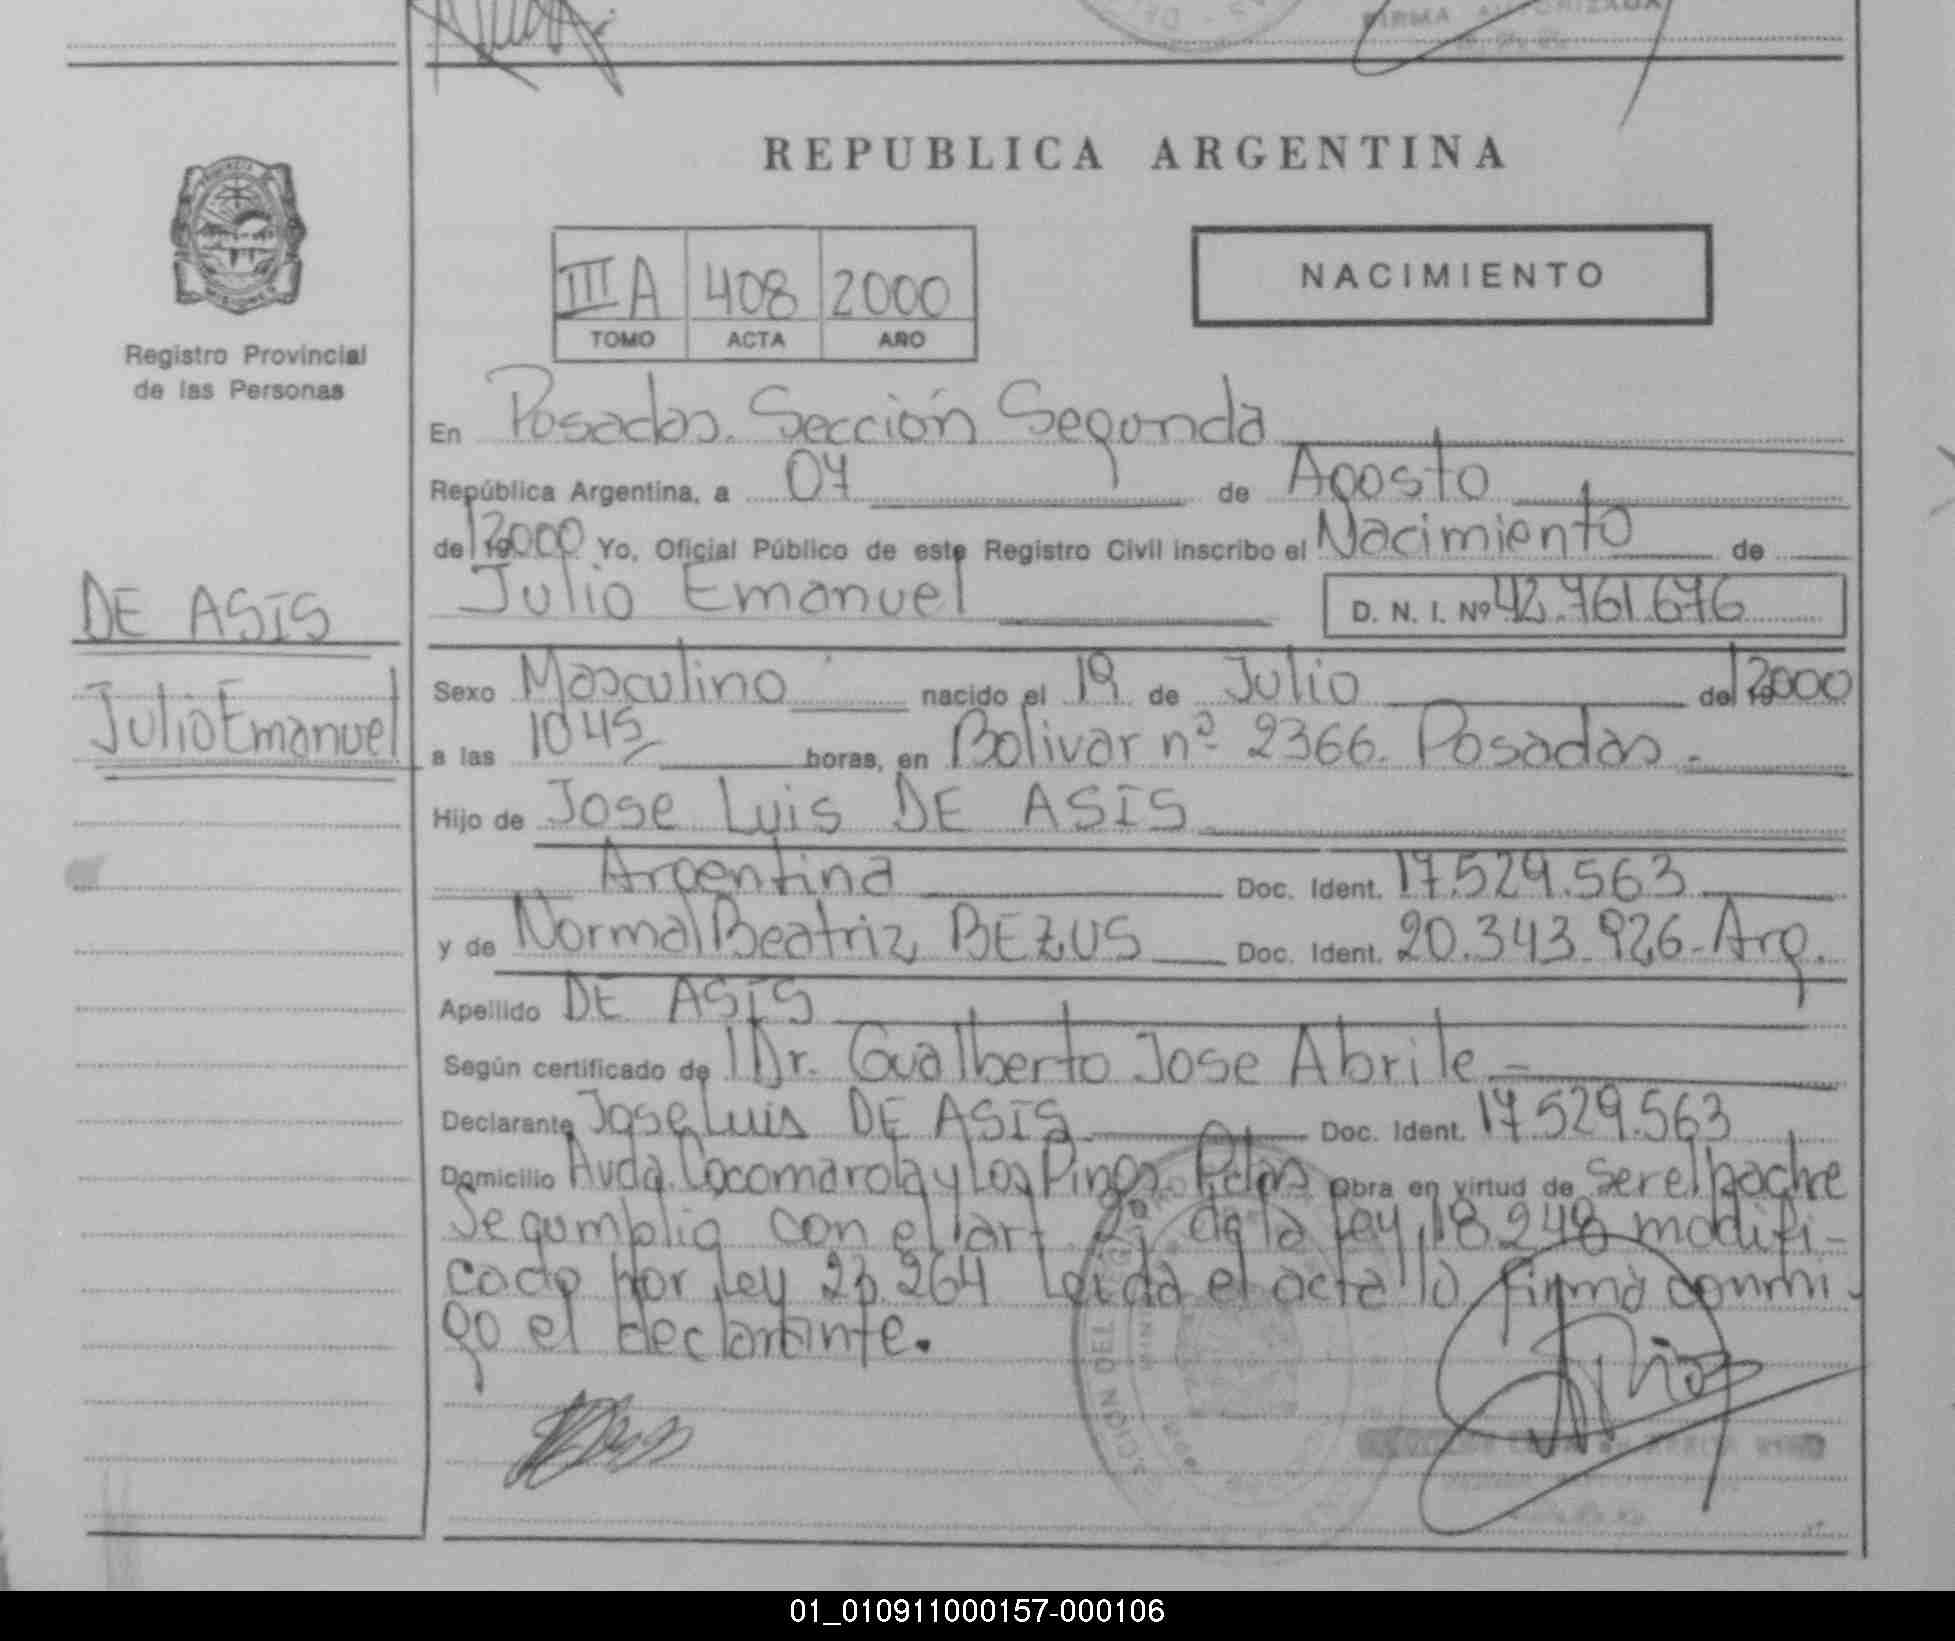 FIRMA AUTORIZADA
REPUBLICA ARGENTINA
III A 408 2000
TOMO ACTA AÑO
NACIMIENTO
Registro Provincial
de las Personas
En Posadas. Sección Segunda
República Argentina, a 07 de Agosto
de 2000 Yo, Oficial Público de este Registro Civil inscribo el Nacimiento de
Julio Emanuel D. N. I. Nº 42.761.676
DE ASIS
Julio Emanuel
Sexo Masculino nacido el 19 de Julio de 2000
a las 10 45 horas, en Bolivar nº 2366. Posadas.-
Hijo de Jose Luis DE ASIS
Argentina Doc. Ident. 17.529.563
y de Norma Beatriz BEZUS Doc. Ident. 20.343.926-Arg.
Apellido DE ASIS
Según certificado de Dr. Gualberto Jose Abrile -
Declarante Jose Luis DE ASIS Doc. Ident. 17.529.563
Domicilio Avda. Cocomarola y Los Pinos Pdas Obra en virtud de ser el padre
Se cumplio con el art 2º de la ley 18.248 modifi-
cado por ley 23.264 Leida el acta lo firmó conmi-
go el declarante.
01_010911000157-000106